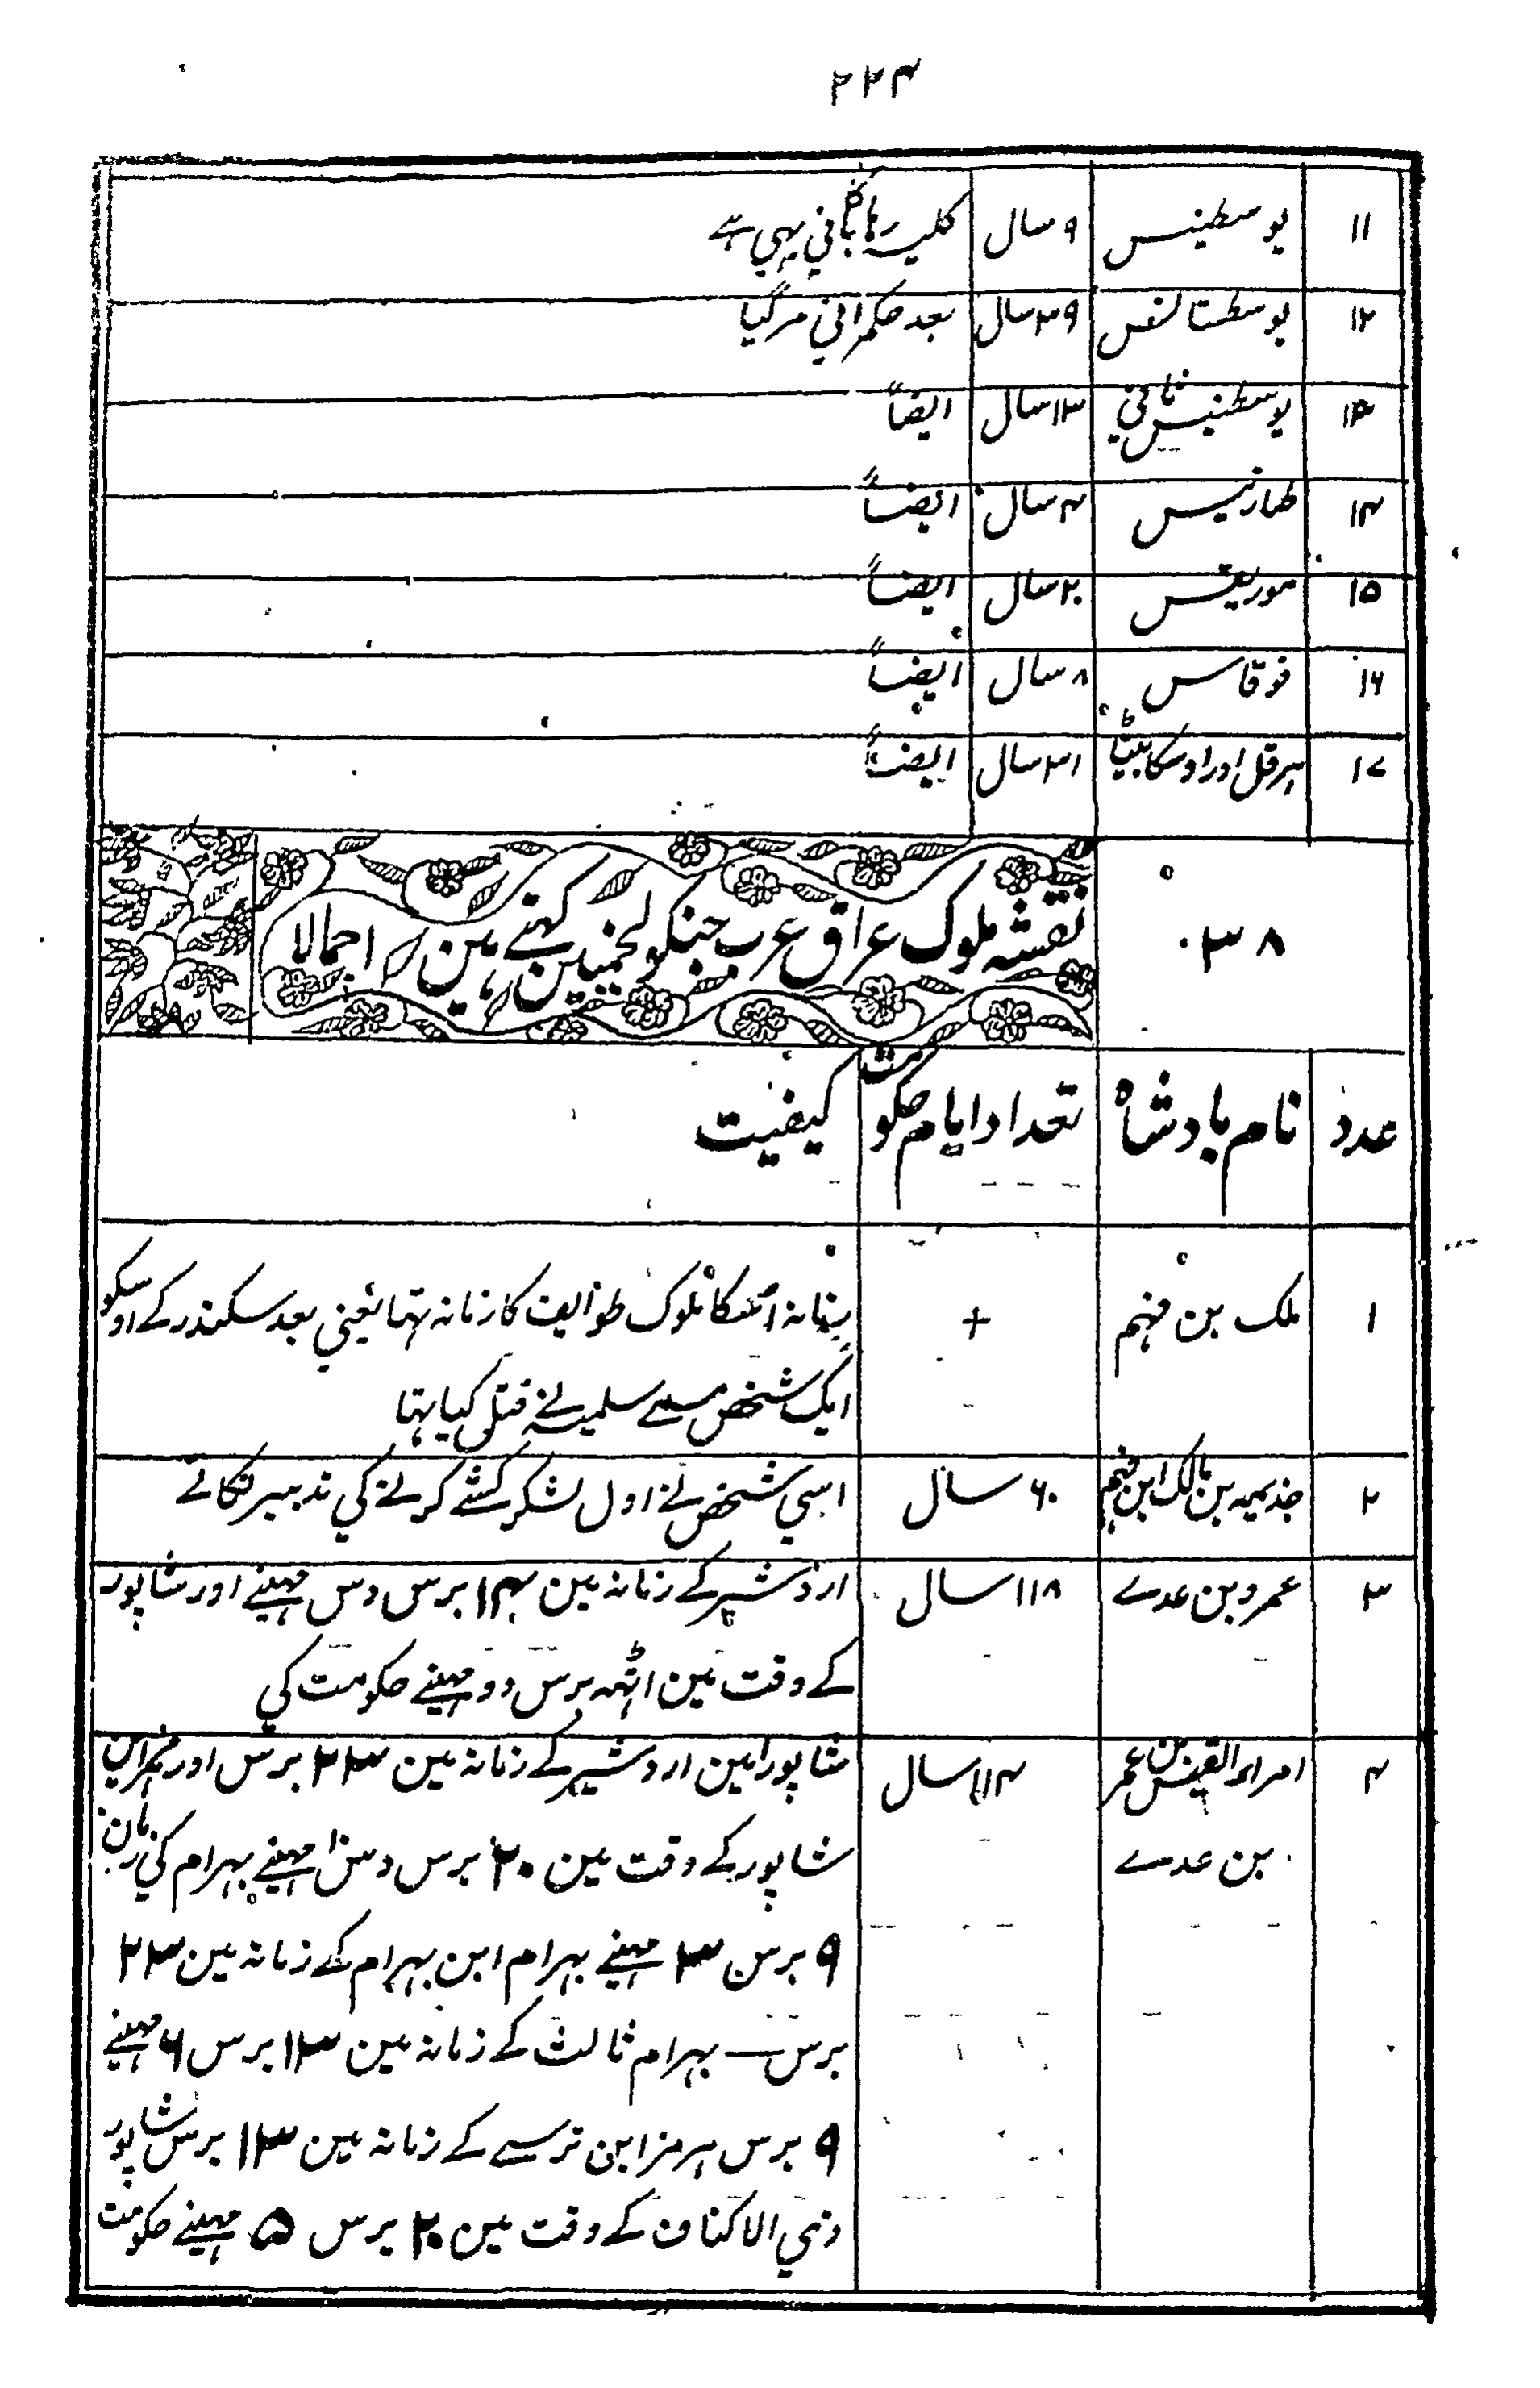 ۲۲۴
۱۱ یوسطینس ۹ سال کلیسہ رہا کا بانی یہی ہے
۱۲ یوسطستانس ۳۹ سال بعد حکمرانی مرگیا
۱۳ یوسطینس ثانی ۱۳ سال ایضاً
۱۴ طمارنیس ۴ سال ایضاً
۱۵ موریقس ۲۰ سال ایضاً
۱۶ فوقاس ۸ سال ایضاً
۱۷ ہرقل اور اوسکا بیٹا ۳۱ سال ایضاً
۳۸ نقشہ ملوک عراق عرب جنکو لخمیین کہتے ہین اجمالا
عدد نام بادشاہ تعداد ایام حکومت کیفیت
۱ ملک بن فہم + زمانہ اسکا ملوک طوایف کا زمانہ تہا یعنی بعد سکندر کے اوسکو
ایک شخص مسمے سلیمہ نے قتل کیا تہا
۲ جذیمہ بن مالک ابن فہم ۶۰ سال اسی شخص نے اول لشکر کشے کرنے کی تدبیر نکالے
۳ عمرو بن عدے ۱۱۸ سال اردشیر کے زمانہ مین ۱۴ برس دس مہینے اور شاپور
کے وقت مین اٹہہ برس دو مہینے حکومت کی
۴ امراء القیس بن عمر ۱۱۴ سال شاپور ابن اردشیر کے زمانہ مین ۲۳ برس اور
بن عدے شاپور کے وقت مین ۲۰ برس دس مہینے بہرام کی زمان
۹ برس ۳ مہینے بہرام ابن بہرام کے زمانہ مین ۲۳
برس بہرام ثالث کے زمانہ مین ۱۳ برس ۶ مہینے
۹ برس ہرمز ابن نرسے کے زمانہ مین ۱۳ برس شاپور
ذی الاکناف کے وقت مین ۲۰ برس ۵ مہینے حکومت